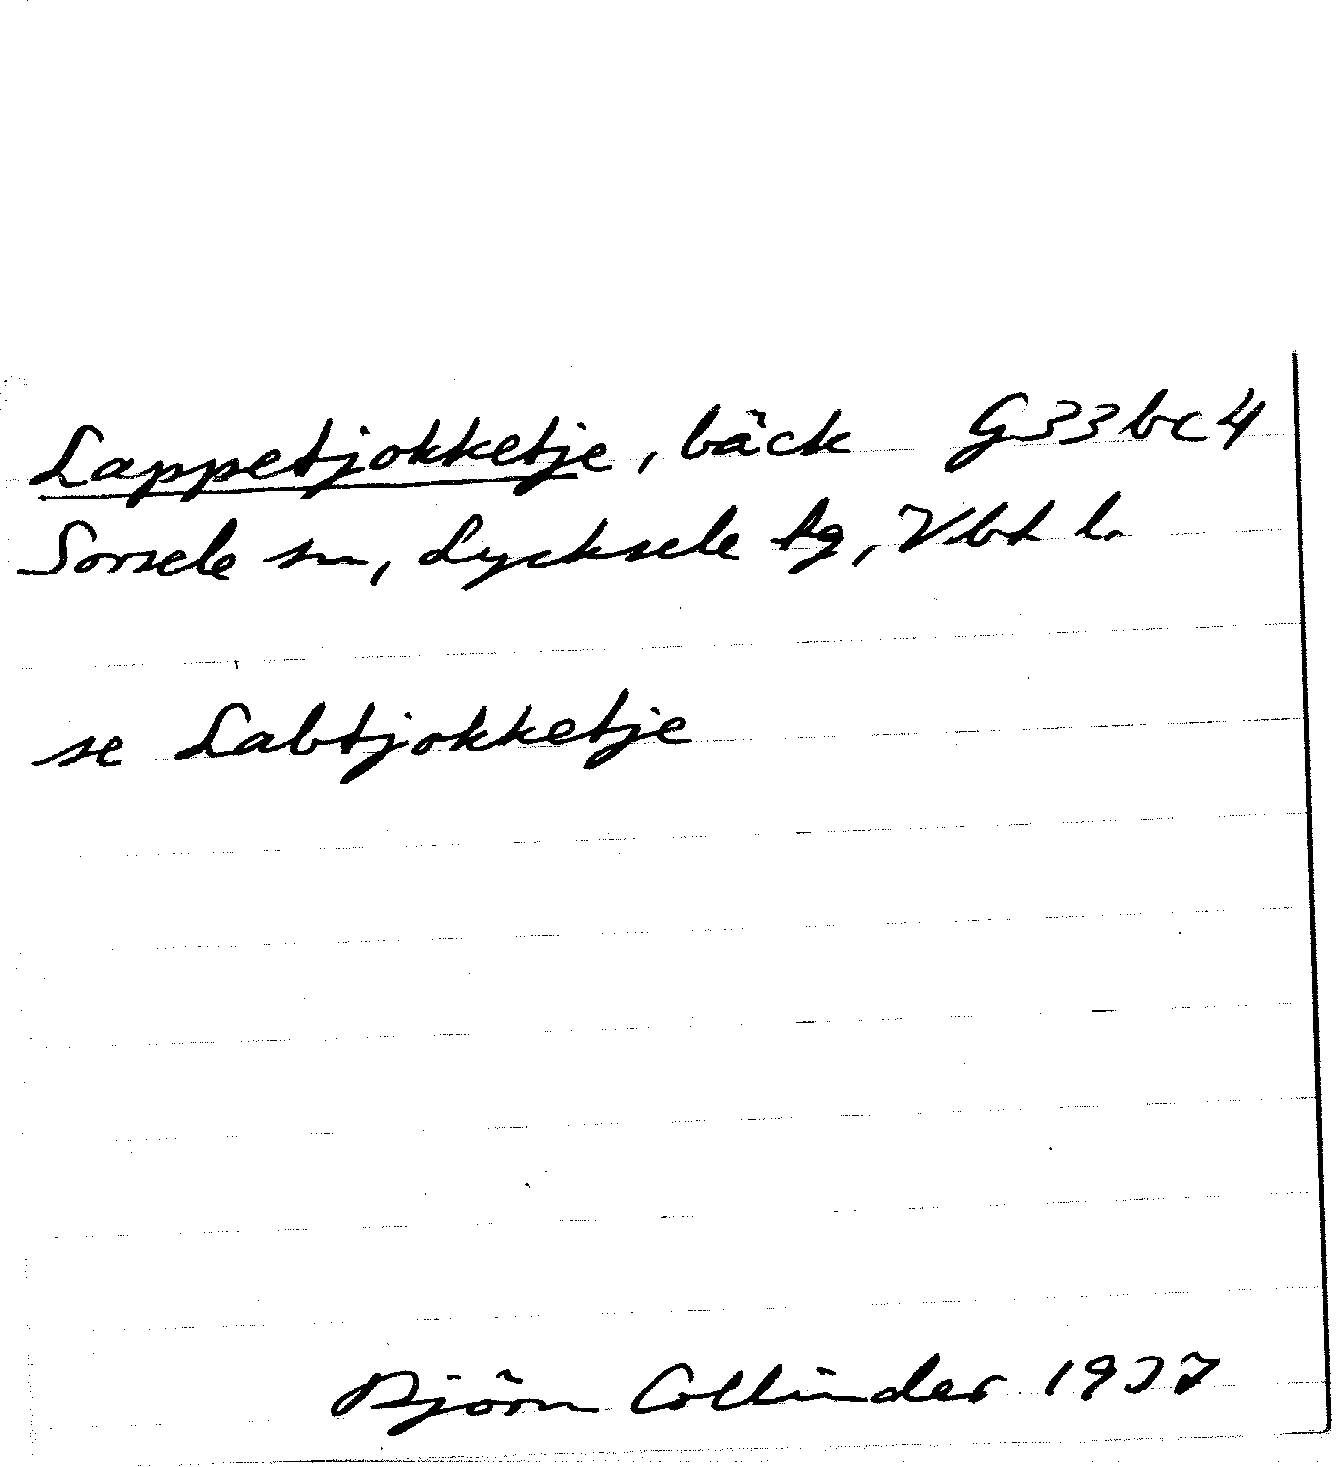 Lappetjokketje, bäck G33bc4
Sorsele sn, Lycksele tg, Vbt l.
se Labtjokketje
Björn Collinder 1977